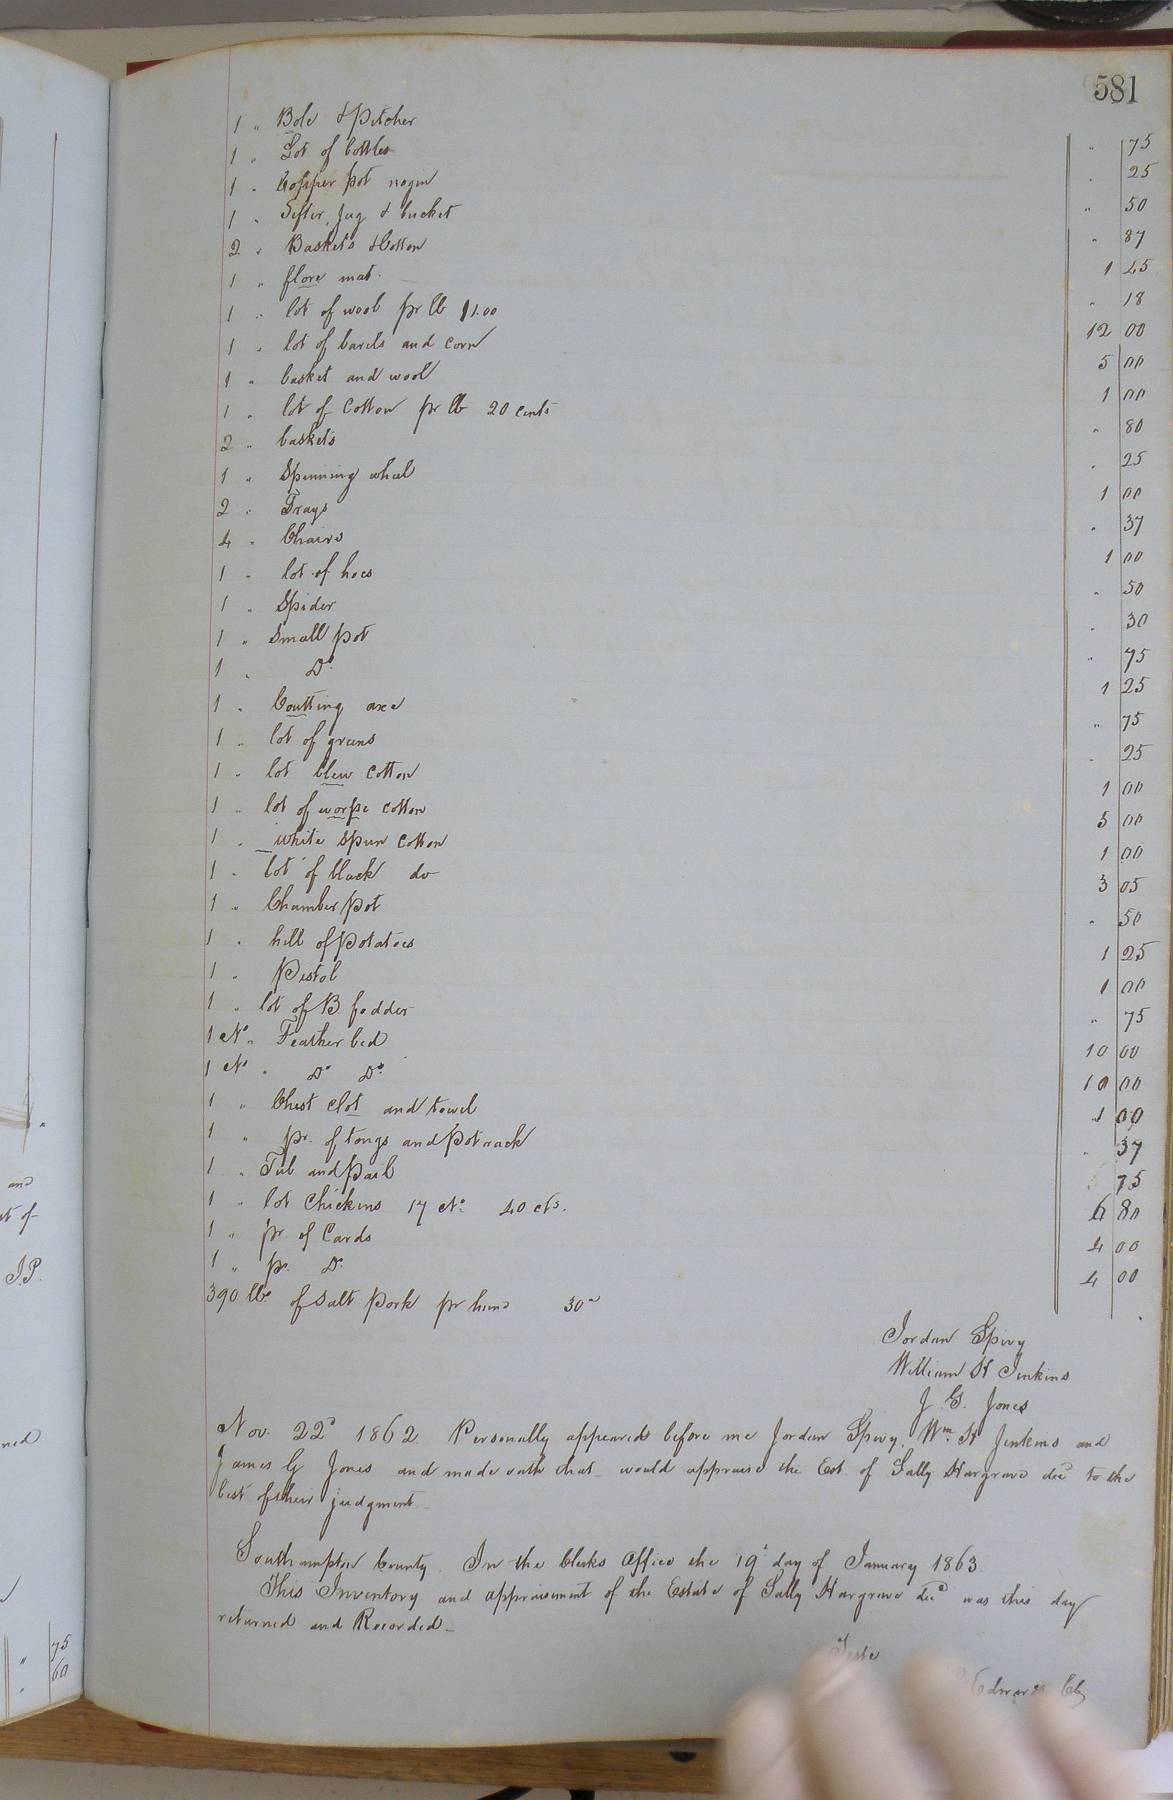 581
1 " Bole & Pitcher " 75
1 " Lot of bottles " 25
1 " Copper pot nogin " 50
1 " Sifter, Jug & bucket " 87
2 " Baskets & Cotton 1 45
1 " flore mat " 18
1 " lot of wool pr lb $1.00 12 00
1 " lot of barels and corn 5 00
1 " basket and wool 1 00
1 " lot of Cotton pr lb 20 cents " 80
2 " baskets " 25
1 " Spinning wheel 1 00
2 " Trays " 37
4 " Chairs 1 00
1 " lot of hoes " 50
1 " Spider " 30
1 " Small pot " 75
1 " Do 1 25
1 " Coutting axe " 75
1 " lot of greens " 25
1 " lot blew cotton 1 00
1 " lot of worpe cotton 5 00
1 " white spun cotton 1 00
1 " lot of black do 3 05
1 " Chamber pot " 50
1 " hill of Potatoes 1 25
1 " Pistol 1 00
1 " lot of B. fodder " 75
1 No " Feather bed 10 00
1 No " Do Do 10 00
1 " Chest clot and towel 1 00
1 " pr. of tongs and Pot rack " 37
1 " Tub and Pail 75
1 " lot Chickins 17 No 40 cts. 6 80
1 " pr of Cards 4 00
1 " pr. Do 4 00
390 lbs of Salt Pork pr hund 30
Jordan Spivy
William H Jenkins
J. G. Jones
Nov. 22d 1862. Personally appeared before me Jordan Spivy, Wm H Jenkins and
James G Jones and made oath that would appraise the Est. of Sally Hargrave decd to the
best of their judgment
Southampton County. In the Clerks Office the 19th day of January 1863.
This Inventory and appraisment of the Estate of Sally Hargrave decd was this day
returned and Recorded
Teste
Edwards Clk
and
of
J.P.
" 75
" 60